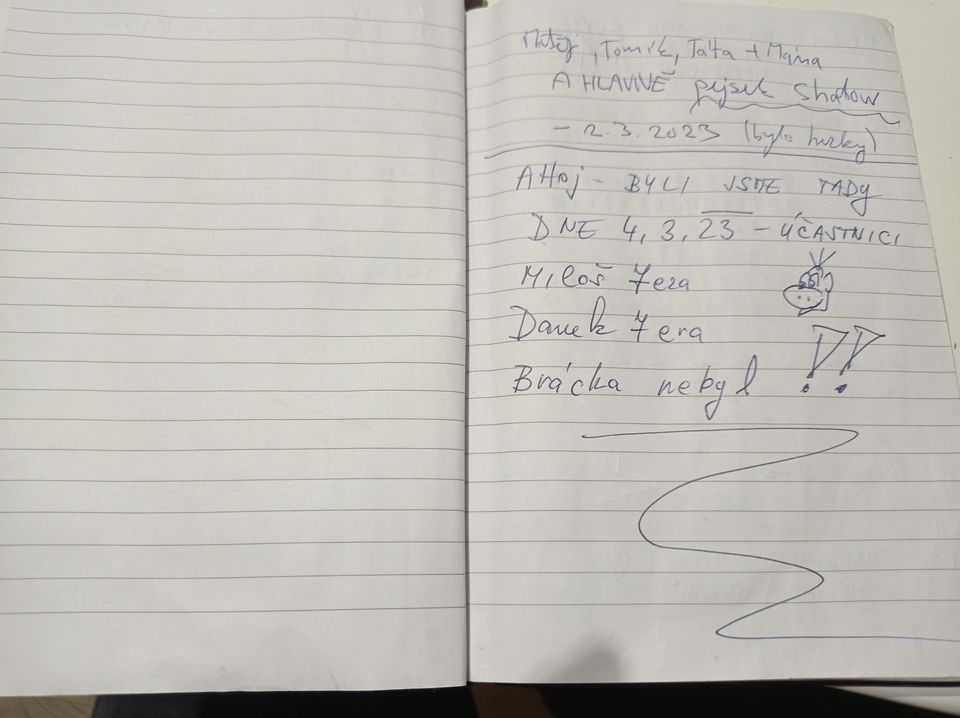 Matěj, Tomík, Táta + Máma
A HLAVNĚ pejsek Shadow
- 2.3.2023 (bylo hezky)
AHoj - BYLI JSME TADY
DNE 4,3,23 - ÚČASTNICI
Miloš 7era
Danek 7era
Brácka nebyl !!